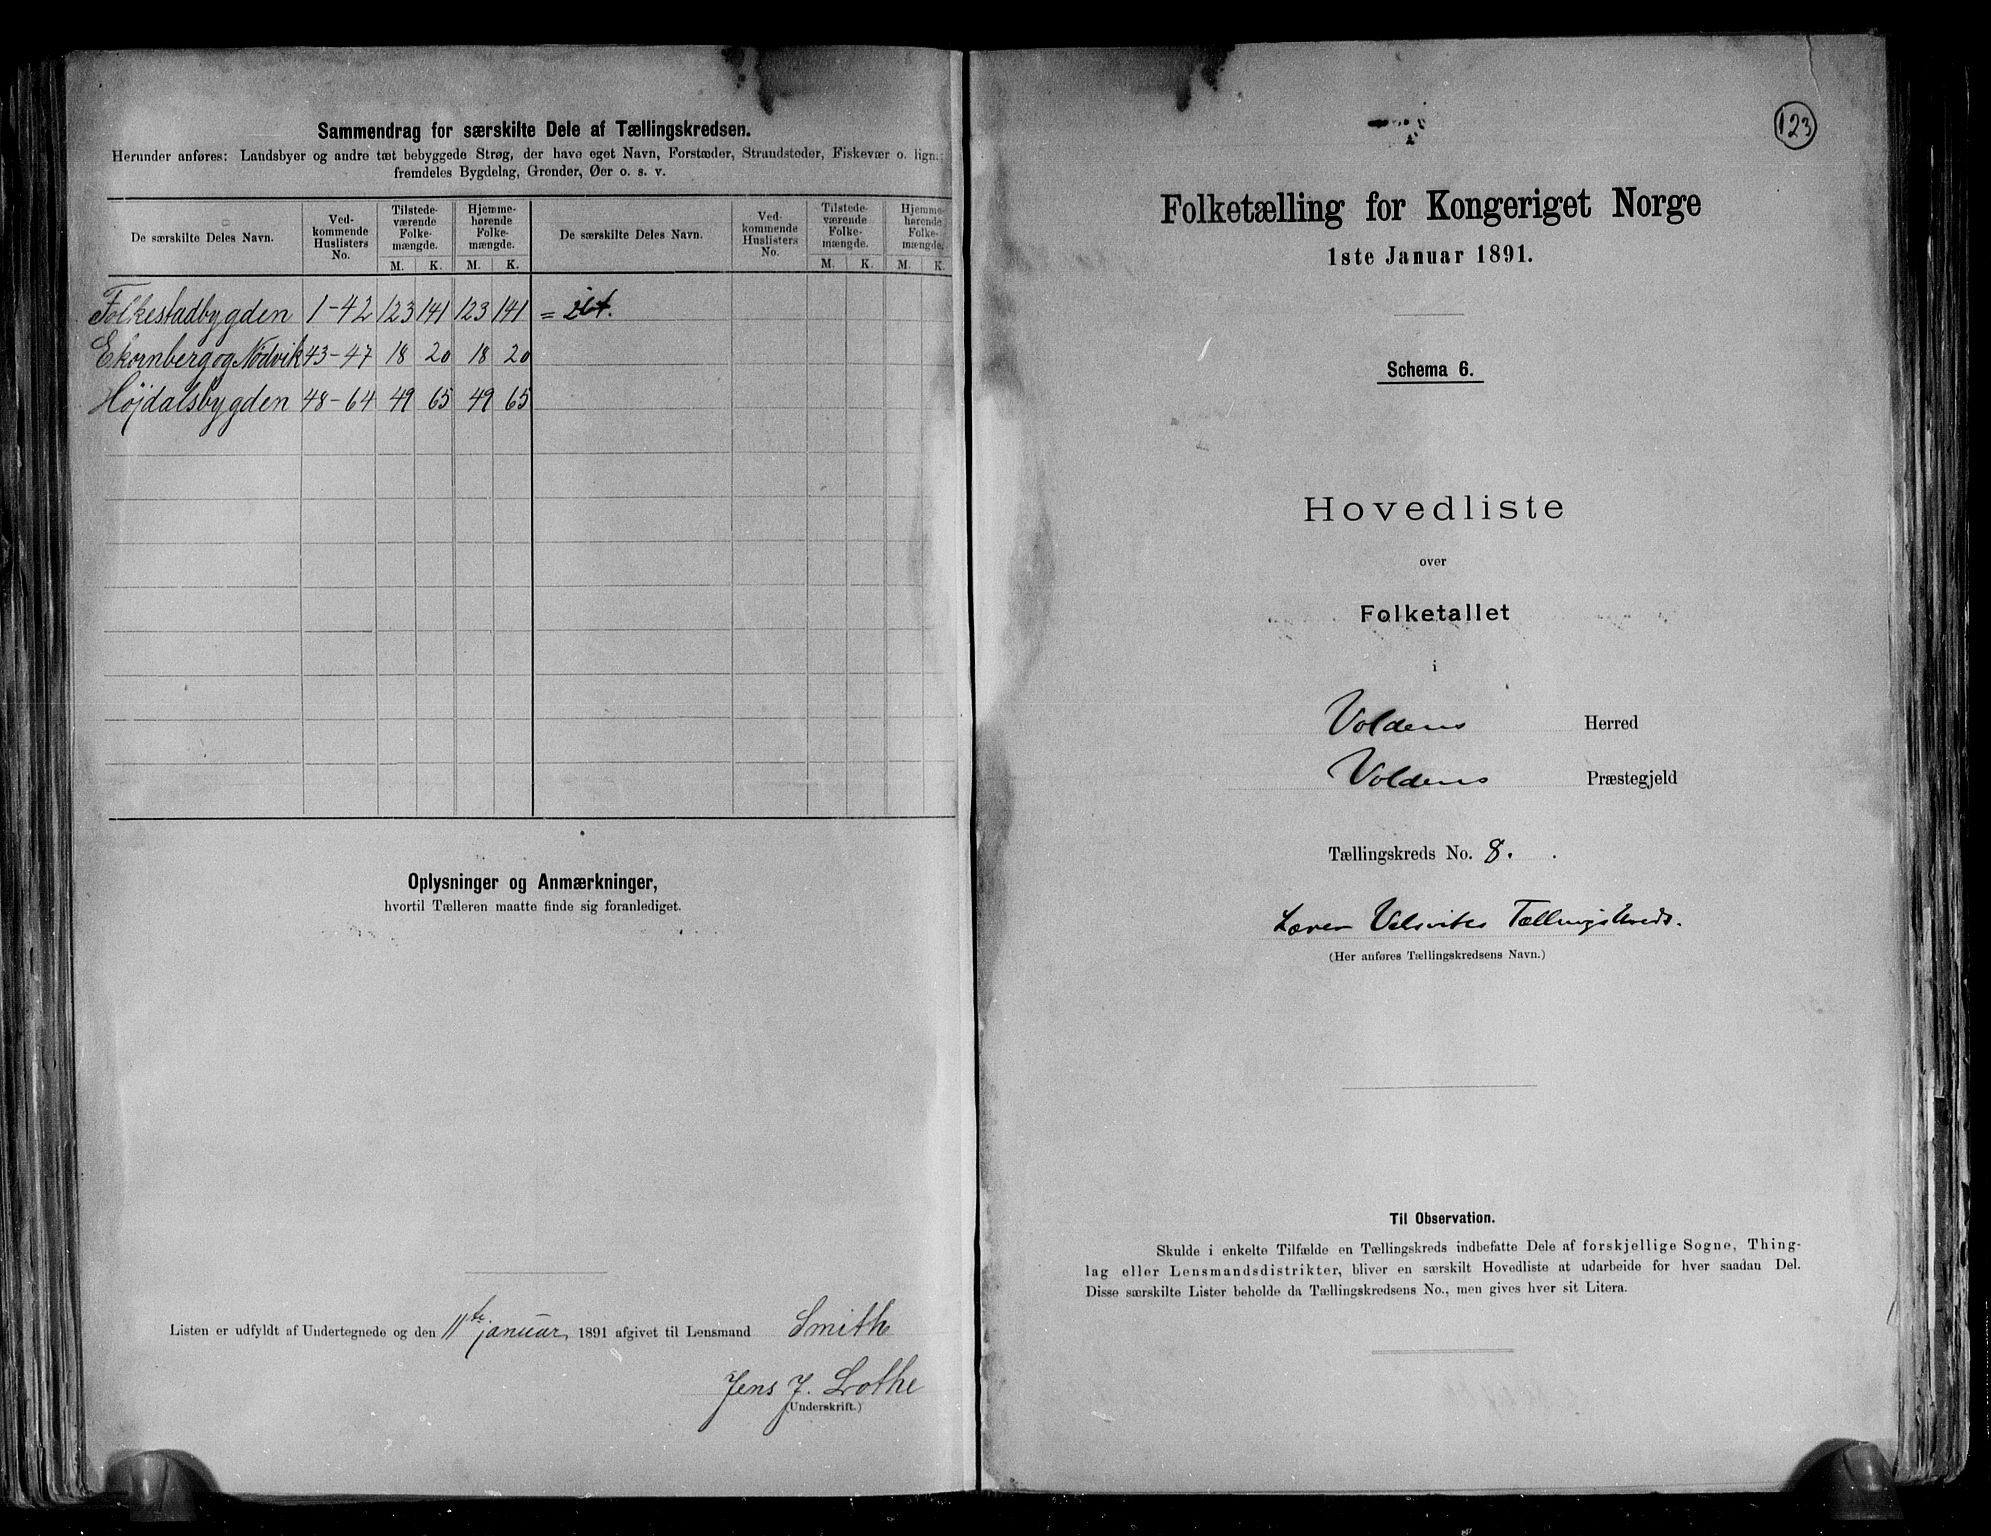 Sammendrag for særskilte Dele af Tællingskredsen.
Herunder anføres: Landsbyer og andre tæt bebyggede Strøg, der have eget Navn, Forstæder, Strandsteder, Fiskevær o. lign.;
fremdeles Bygdelag, Grender, Øer o. s. v.
De særskilte Deles Navn. Ved-kommende Huslisters No. Tilstede-værende Folke-mængde. Hjemme-hørende Folke-mængde. De særskilte Deles Navn. Ved-kommende Huslisters No. Tilstede-værende Folke-mængde. Hjemme-hørende Folke-mængde.
M. K. M. K. M. K. M. K.
Folkestadbygden 1-42 123 141 123 141 = 264.
Ekornberg og Nødvik 43-47 18 20 18 20
Højdalsbygden 48-64 49 65 49 65
Oplysninger og Anmærkninger,
hvortil Tælleren maatte finde sig foranlediget.
Listen er udfyldt af Undertegnede og den 11te januar 1891 afgivet til Lensmand Smith
Jens J. Lothe
(Underskrift.)
123
Folketælling for Kongeriget Norge
1ste Januar 1891.
Schema 6.
Hovedliste
over
Folketallet
i
Voldens Herred
Voldens Præstegjeld
Tællingskreds No. 8.
Lærer Velsviks Tællingskreds.
(Her anføres Tællingskredsens Navn.)
Til Observation.
Skulde i enkelte Tilfælde en Tællingskreds indbefatte Dele af forskjellige Sogne, Thing-
lag eller Lensmandsdistrikter, bliver en særskilt Hovedliste at udarbeide for hver saadan Del.
Disse særskilte Lister beholde da Tællingskredsens No., men gives hver sit Litera.